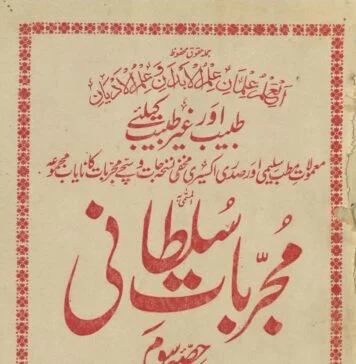 جملہ حقوق محفوظ
اَلْعِلْمُ عِلْمَانِ عِلْمُ الْاَبْدَانِ وَ عِلْمُ الْاَدْیَانِ
طبیب اور غیر طبیب کیلئے
معمولات مطب سلیمی اور صدری اکسیری مخفی نسخہ جات و سچے مجربات کا نایاب مجموعہ
المسمّٰی بہ
مُجرّبات سُلطانی
حصّہ سوم